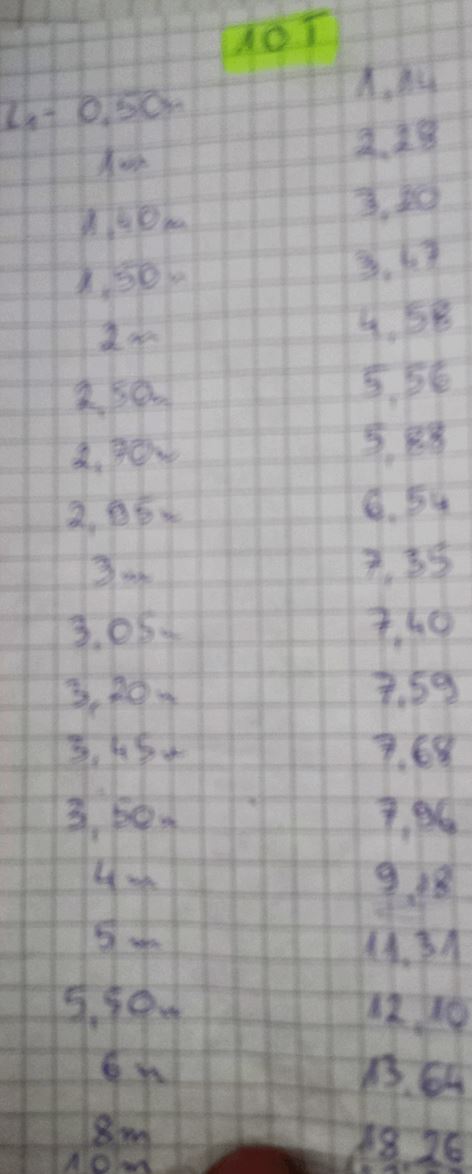 10T
0,50m 1,14
1m 2,28
1,40m 3,20
1,50m 3,47
2m 4,58
2,50m 5,56
2,70m 5,88
2,95m 6,54
3m 7,35
3,05m 7,40
3,20m 7,59
3,45m 7,68
3,50m 7,96
4m 9,18
5m 11,31
12,10
6m 13,64
8m 18,26
10m